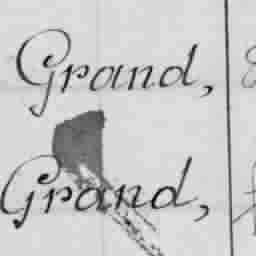 Grand,
Grand,